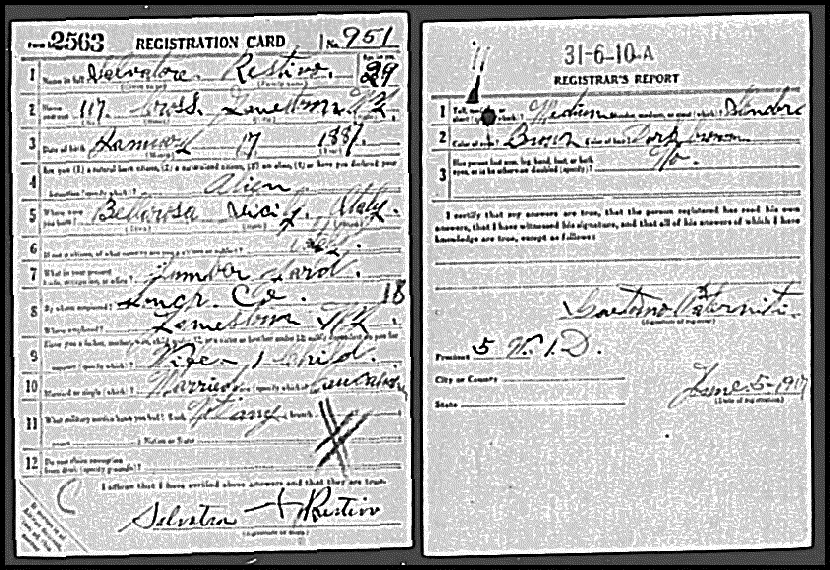 Form 1 2563 REGISTRATION CARD No. 951
1 Name in full Salvatore Restivo. Age in yrs. 29
(Given name) (Family name)
2 Home address 117 Cross. Jamestown N.Y.
3 Date of birth 17 1887.
4 Are you (1) a natural-born citizen, (2) a naturalized citizen, (3) an alien, (4) or have you declared your
intention (specify which)? Alien
5 Where were you born? Sicily Italy.
6 If not a citizen, of what country are you a citizen or subject? Italy.
7 What is your present trade, occupation, or office?
8 By whom employed? Co. 18
Where employed? Jamestown N.Y.
9 Have you a father, mother, wife, child under 12, or a sister or brother under 12, solely dependent on you for
support (specify which)? Wife 1 child.
10 Married or single (which)? Married Race (specify which)? Caucasian
11 What military service have you had? Rank Not any branch
years Nation or State
12 Do you claim exemption from draft (specify grounds)?
I affirm that I have verified above answers and that they are true.
Restivo
(Signature or mark)
31-6-10-A
REGISTRAR'S REPORT
1 Tall, medium, or short (specify which)? Medium Slender, medium, or stout (which)? Slender
2 Color of eyes? Brown Color of hair? Dark brown
3 Has person lost arm, leg, hand, foot, or both eyes, or is he otherwise disabled (specify)? No.
I certify that my answers are true, that the person registered has read his own
answers, that I have witnessed his signature, and that all of his answers of which I have
knowledge are true, except as follows:
Gaetano Paterniti.
(Signature of registrar)
Precinct 5 W. 1. D.
City or County
State
June 5-1917
(Date of registration)